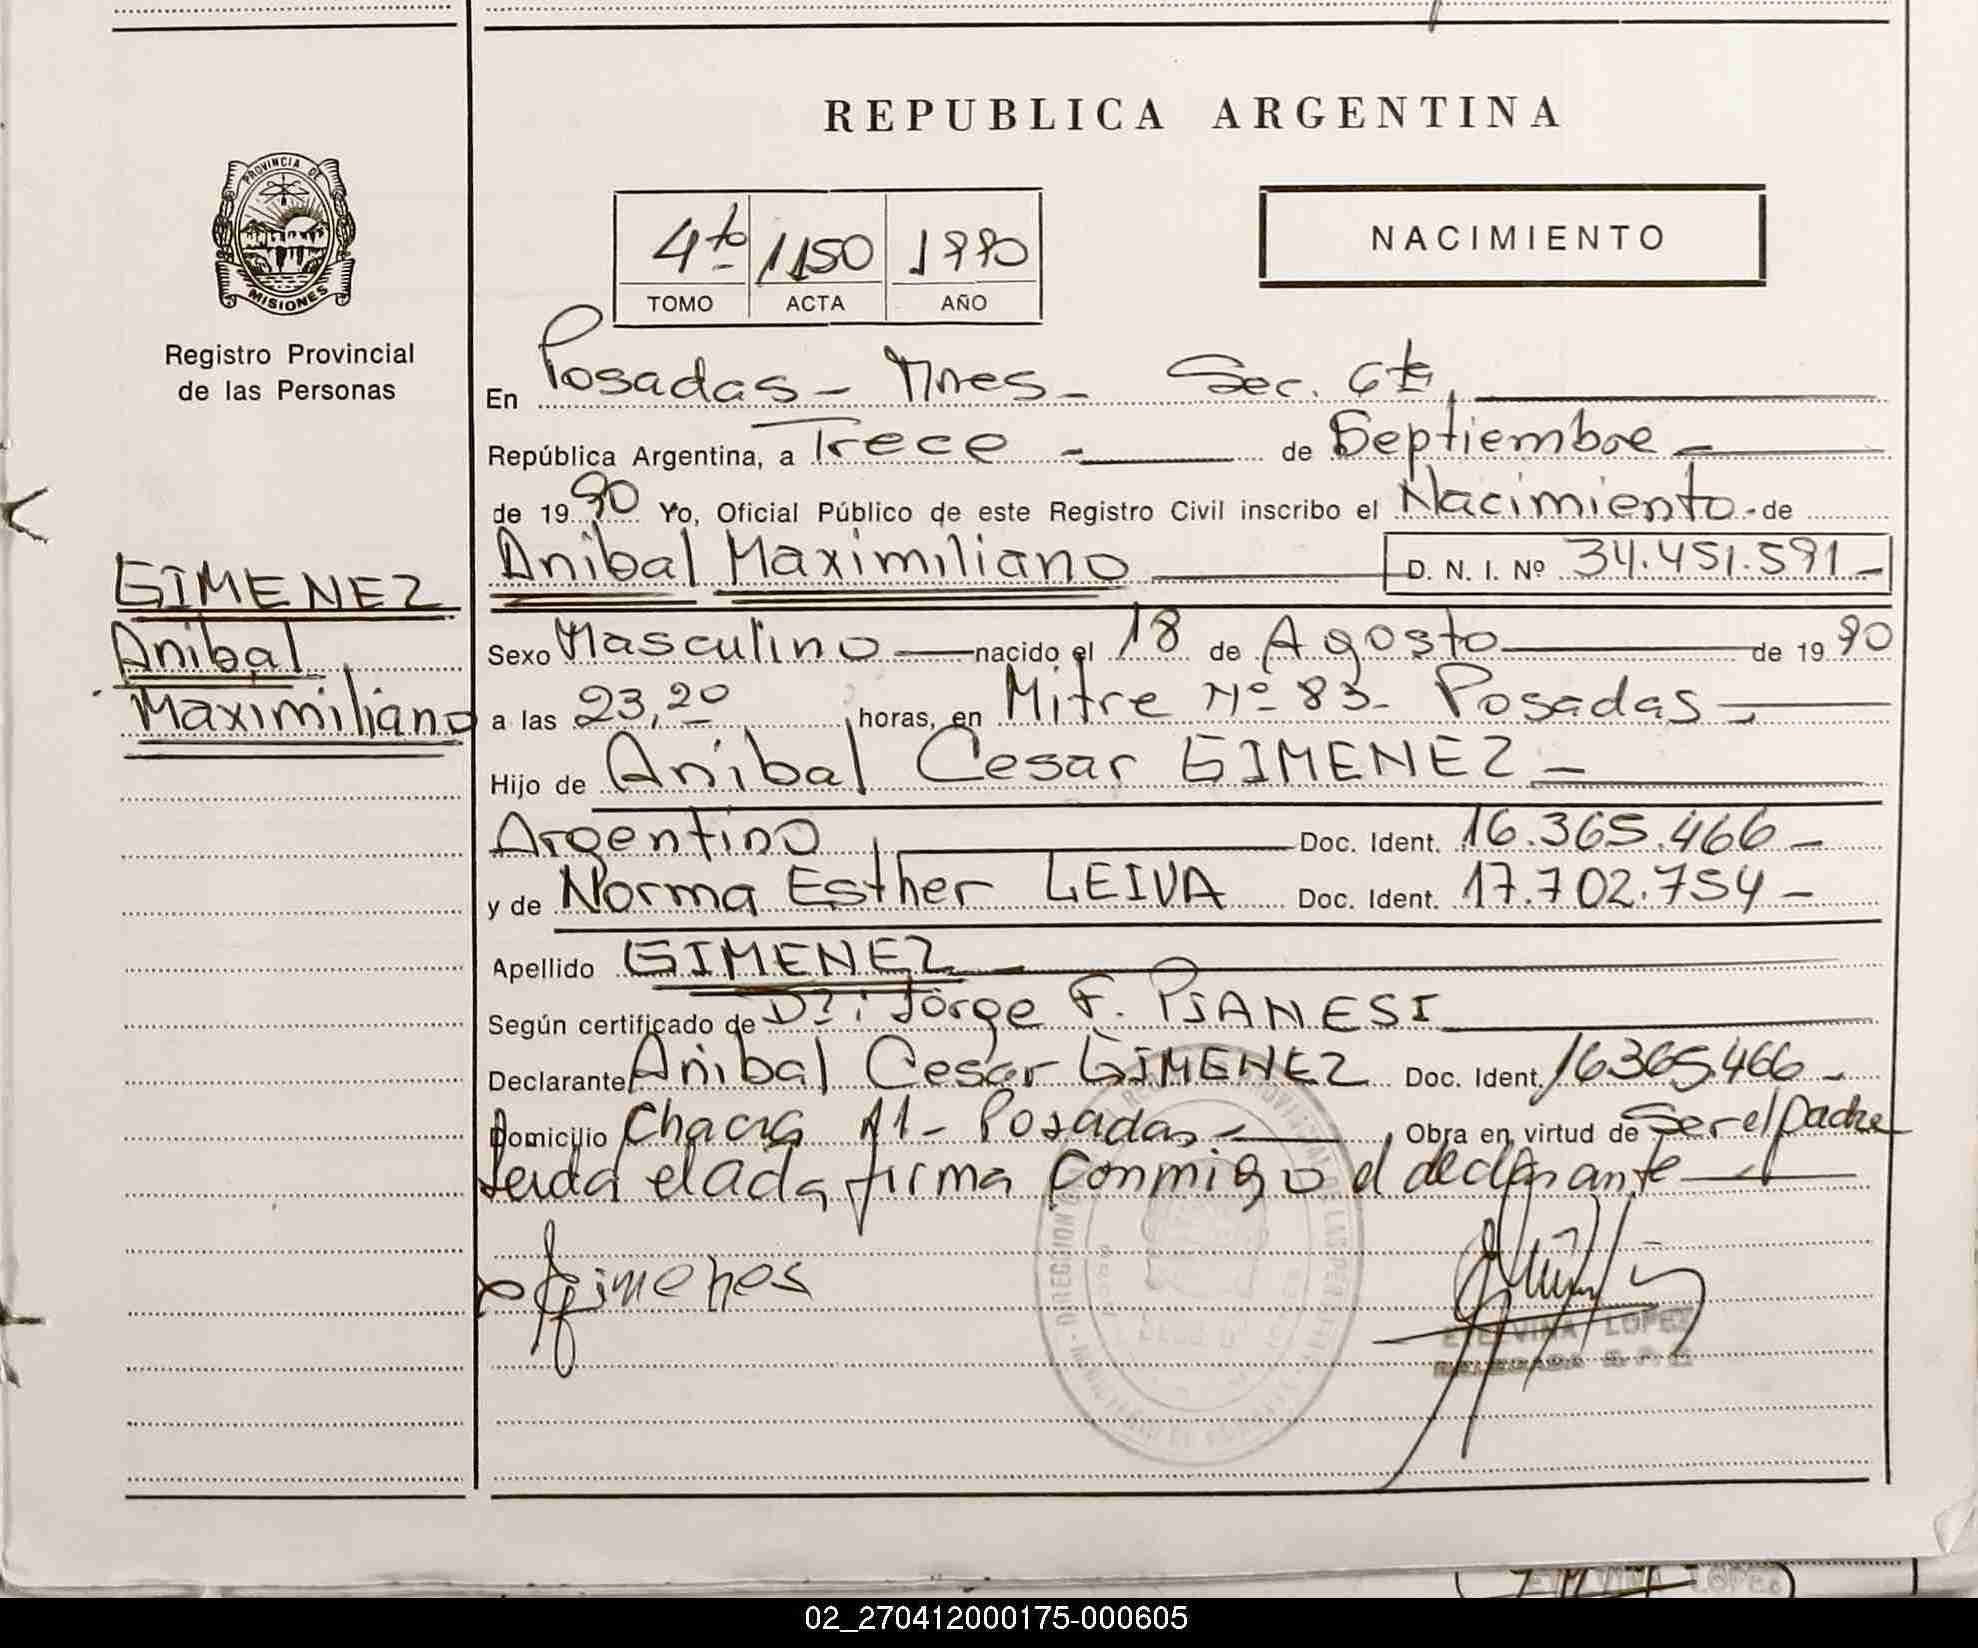 REPUBLICA ARGENTINA
PROVINCIA DE
MISIONES
Registro Provincial
de las Personas
4to 1150 1990
TOMO ACTA AÑO
NACIMIENTO
En Posadas - Mnes - Sec. 6ta
República Argentina, a Trece - de Septiembre -
de 1990 Yo, Oficial Público de este Registro Civil inscribo el Nacimiento de
Anibal Maximiliano D. N. I. Nº 34.451.591 -
GIMENEZ
Anibal
Maximiliano
Sexo Masculino nacido el 18 de Agosto de 1990
a las 23,20 horas, en Mitre Nº 83 - Posadas -
Hijo de Anibal Cesar GIMENEZ -
Argentino Doc. Ident. 16.365.466 -
y de Norma Esther LEIVA Doc. Ident. 17.702.754 -
Apellido GIMENEZ -
Según certificado de Dr: Jorge F. PIANESI
Declarante Anibal Cesar GIMENEZ Doc. Ident. 16365.466 -
Domicilio Chacra 11 - Posadas - Obra en virtud de Ser el padre
Leida el acta firma conmigo el declarante
Gimenes
ETELVINA LOPEZ
DELEGADA
02_270412000175-000605